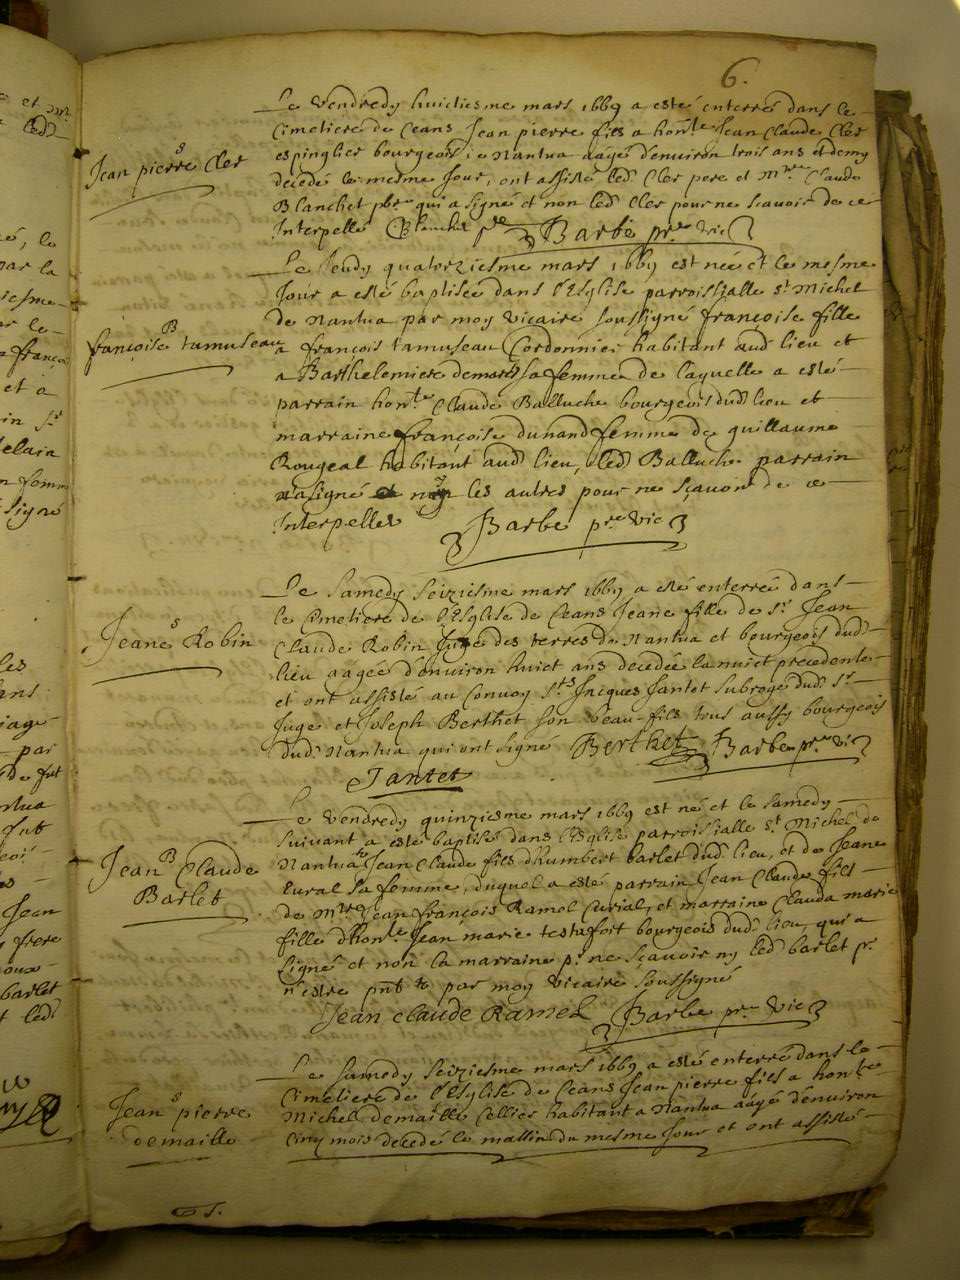 6.
Le vendredy huictiesme mars 1669 a esté enterré dans le
Cimetiere de Ceans Jean pierre fils a hon.le Jean Claude Cler
espinglier bourgeois de Nantua aagé d'environ trois ans et demy
decedé le mesme Jour, ont assisté led. Cler pere et M.re Claude
Blanchet pbre qui a signé et non led. Cler pour ne sçavoir de ce
Interpellé Blanchet pbre Barbe p.re vic
S
Jean pierre Cler
Le Jeudy quatorziesme mars 1669 est née et le mesme
Jour a esté baptisée dans l'Esglise parroissialle S.t Michel
de Nantua par moy vicaire soussigné françoise fille
a françois tamuseau Cordonnier habitant aud. lieu et
a Barthelemiere demard sa femme de laquelle a esté
parrain hon.le Claude Balluche bourgeois dud. lieu et
marraine françoise dunand femme de guillaume
Rougeal habitant aud. lieu, led. Balluche parrain
a signé et non les autres pour ne sçavoir de ce
Interpellez
Barbe p.re vic
B
françoise tamuseau
Le Samedy Seiziesme mars 1669 a esté enterrée dans
le Cimetiere de l'Esglise de Ceans Jeane fille de S.r Jean
Claude Robin Juge des terres de Nantua et bourgeois dud.
lieu aagée d'environ huict ans decedée la nuict precedente
et ont assisté au Convoy S.rs Jacques Jantet subrogé dud. S.r
Juge et Joseph Berthet son beau-fils tous aussy bourgeois
dud. Nantua qui ont signé Berthet Barbe p.re vic
Jantet
S
Jeane Robin
Le Vendredy quinziesme mars 1669 est né et le Samedy
suivant a esté baptisé dans l'Esglise parroissialle S.t Michel de
Nantua Jean Claude fils d'humbert barlet dud. lieu, et de Jeane
Eural sa femme, duquel a esté parrain Jean Claude fils
de M.re Jean françois Ramel Curial, et marraine Clauda marie
fille d'hon.le Jean marie testafort bourgeois dud. lieu, qui a
signé et non la marraine p.r ne sçavoir ny led. barlet p.r
n'estre pnt par moy vicaire soussigné
Jean Claude Ramel Barbe p.re vic
B
Jean Claude
Barlet
Le Samedy Seiziesme mars 1669 a esté enterré dans le
Cimetiere de l'Esglise de Ceans Jean pierre fils a hon.le
Michel demaille Cellier habitant a Nantua aagé d'environ
Cinq mois decedé le mattin du mesme Jour et ont assisté
S
Jean pierre
demaille